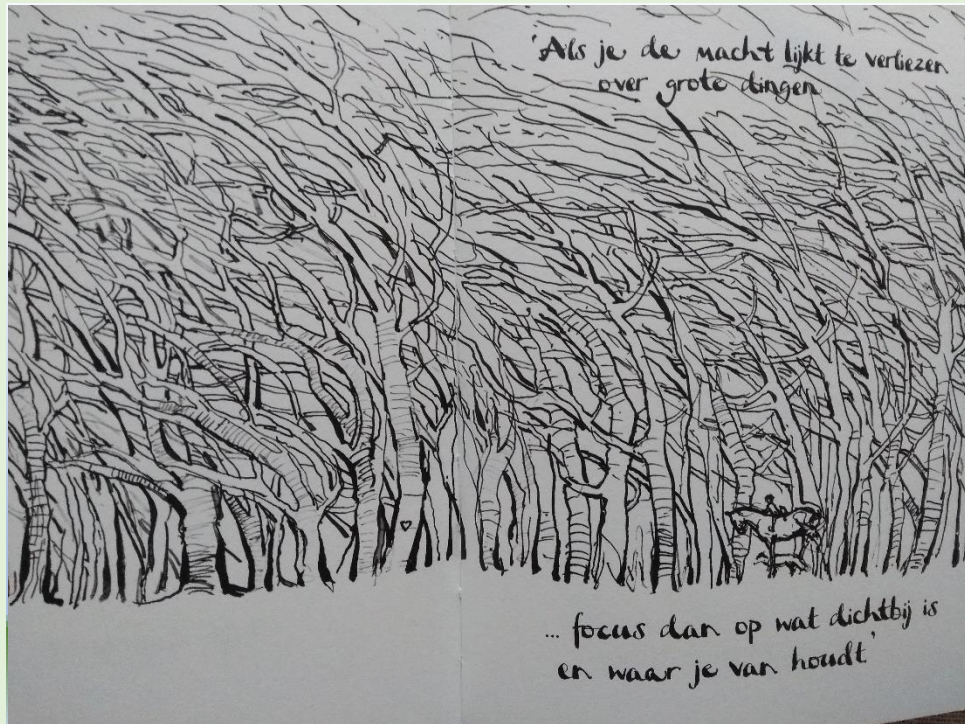 'Als je de macht lijkt te verliezen
over grote dingen
... focus dan op wat dichtbij is
en waar je van houdt'